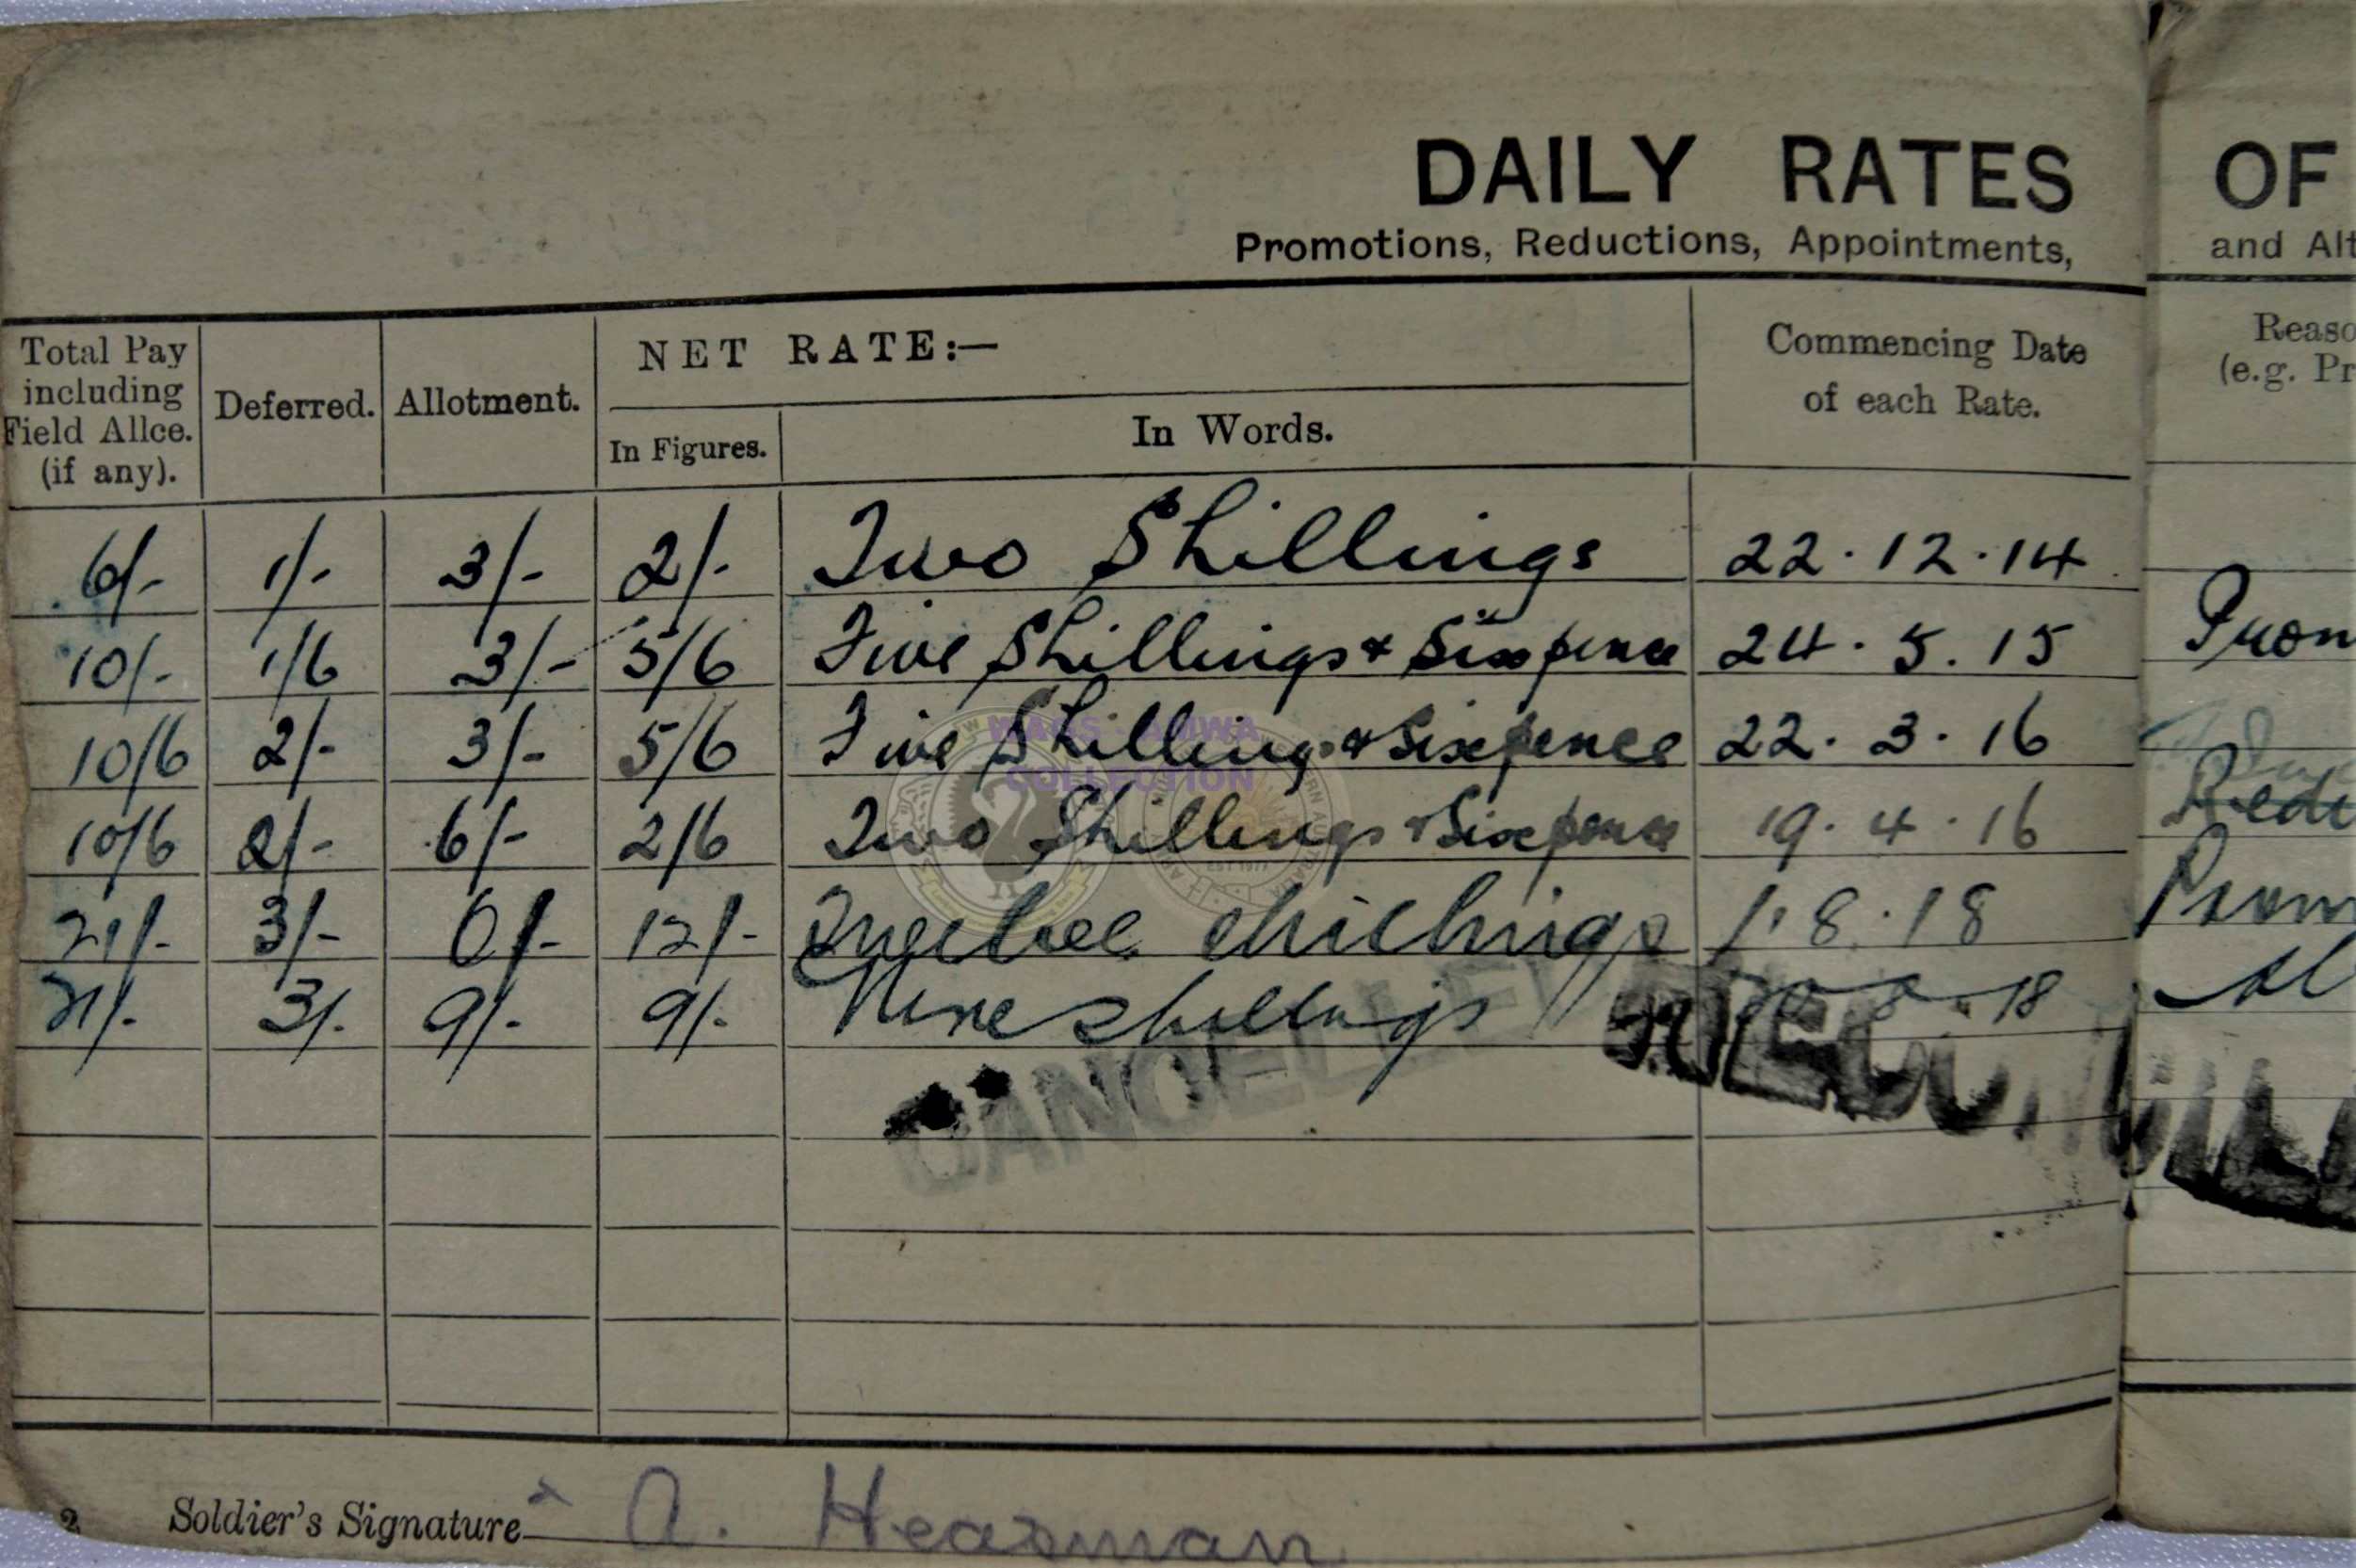 DAILY RATES OF
Promotions, Reductions, Appointments, and Alt
Total Pay including Field Allce. (if any).
Deferred.
Allotment.
NET RATE:—
In Figures.
In Words.
Commencing Date of each Rate.
Reaso
(e.g. Pr
6/- 1/- 3/- 2/- Two Shillings 22.12.14
10/- 1/6 3/- 5/6 Five Shillings & Sixpence 24.5.15 Prom
10/6 2/- 3/- 5/6 Five Shillings & Sixpence 22.3.16
10/6 2/- 6/- 2/6 Two Shillings & Sixpence 19.4.16 Redu
21/- 3/- 6/- 12/- Twelve shillings 1.8.18 Prom
21/- 3/- 9/- 9/- Nine shillings 8.18 Al
CANCELLED
WAHS - AHWA
COLLECTION
EST 1977
2 Soldier's Signature A. Heasman